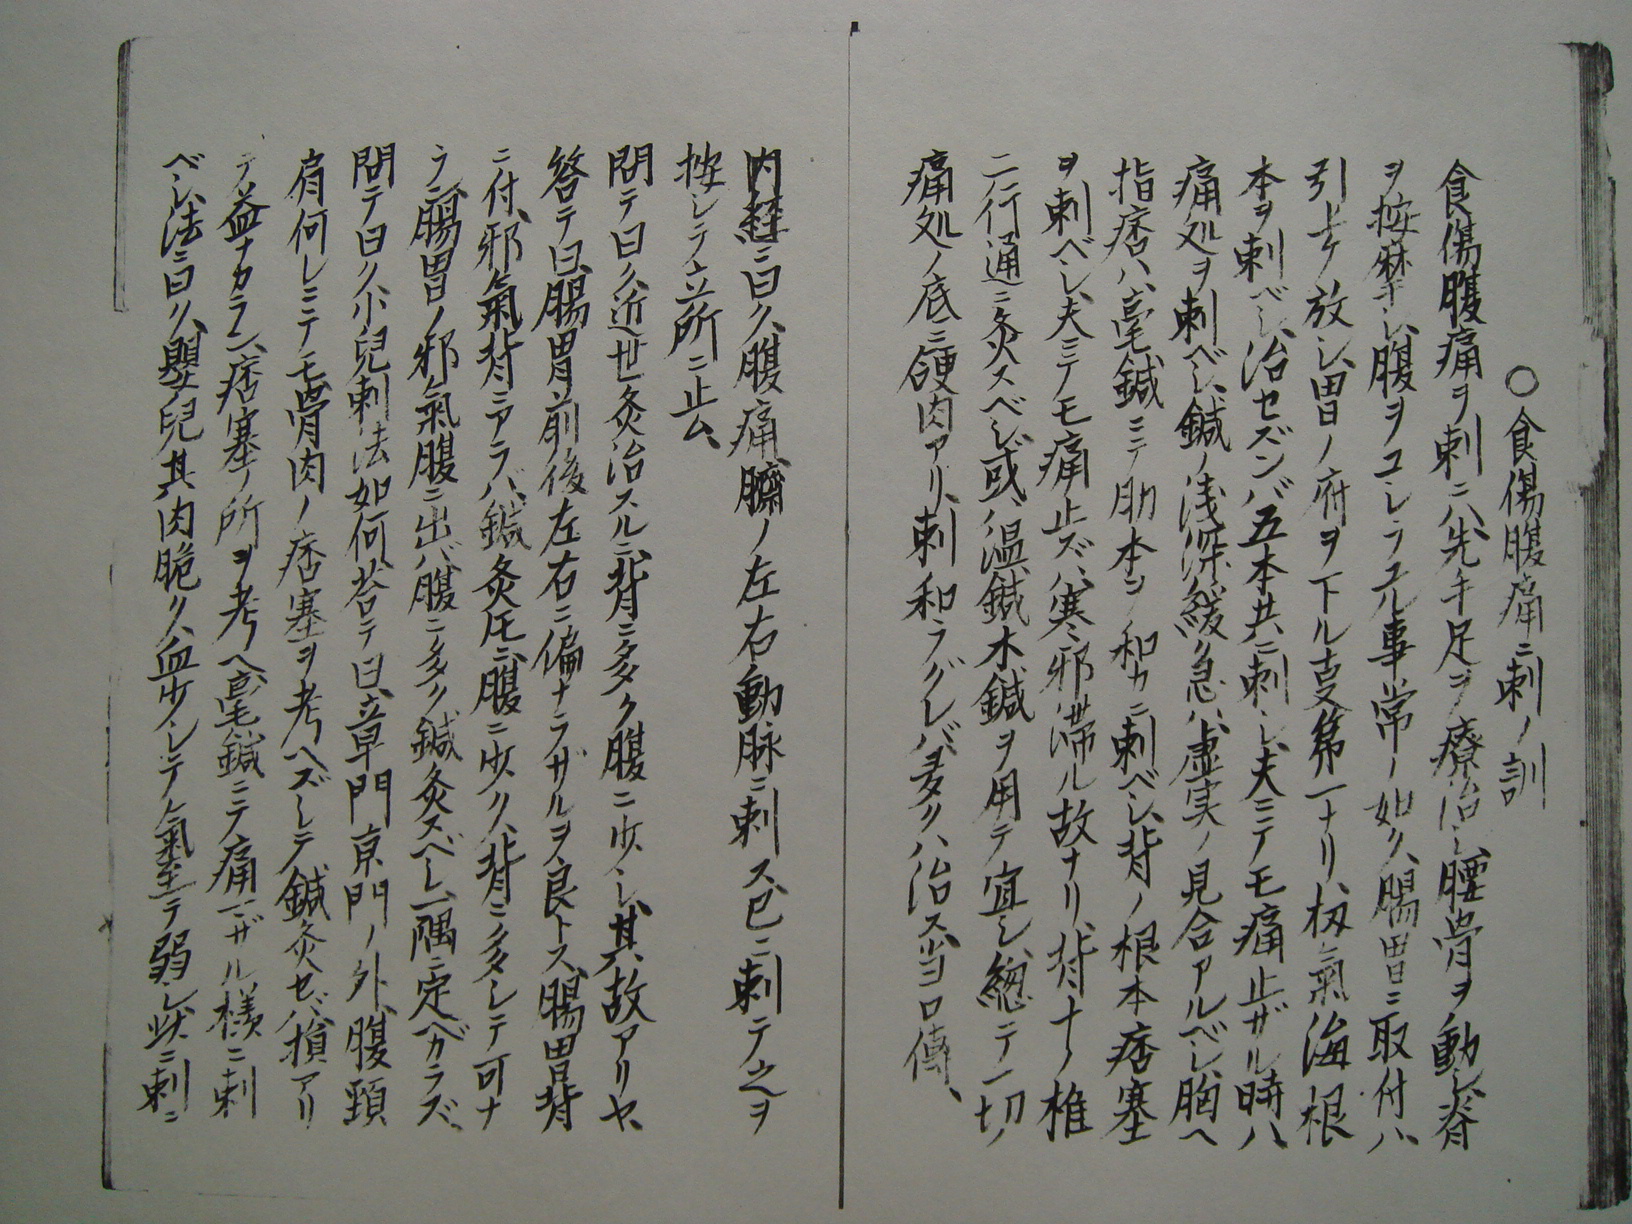 ○食傷腹痛ニ刺ノ訓
食傷腹痛ヲ刺ニハ先手足ヲ療治シ、腰骨ヲ動シ、脊
ヲ按摩シ、腹ヲコシラユル事常ノ如ク、腸胃ニ取付ハ
引上ケ放シ、胃ノ府ヲ下ル支第一ナリ、扨氣海根
本ヲ刺ベシ、治セズンバ五本共ニ刺シ、夫ニテモ痛止ザル時ハ
痛処ヲ刺ベシ、鍼ノ浅深緩急ハ虚実ノ見合アルベシ、胸ヘ
指痞ハ、毫鍼ニテ肋本ヲ和カニ刺ベシ、背ノ根本痞塞
ヲ刺ベシ、夫ニテモ痛止ズバ、寒邪滞ル故ナリ、背十一ノ椎
二行通ニ灸スベシ、或ハ温鍼木鍼ヲ用テ宜シ、總テ一切ノ
痛処ノ底ニ硬肉アリ、刺和ラグレバ多クハ治ス、当ヨロ傳、
内経ニ曰ク、腹痛、臍ノ左右動脉ニ刺ス、已ニ刺テ之ヲ
按シテ立所ニ止ム、
問テ曰ク、近世灸治スルニ、背ニ多ク腹ニ少シ、其故アリヤ、
答テ曰、腸胃前後左右ニ偏ナラザルヲ良トス、腸胃背
ニ付、邪氣背ニアラバ、鍼灸圧ニ腹ニ少ク、背ニ多シテ可ナ
ラン、腸胃ノ邪氣腹ニ出バ、腹ニ多ク鍼灸スベシ、一隅ニ定ベカラズ、
問テ曰ク、小兒刺法如何、荅テ曰、章門京門ノ外、腹頸
肩何レニテモ骨肉ノ痞塞ヲ考ヘズシテ鍼灸セバ、損アリ
テ益ナカラン、痞塞ノ所ヲ考ヘ、毫鍼ニテ痛ザル様ニ刺
ベシ、法ニ曰ク、嬰兒其肉脆ク、血少シテ氣至テ弱シ、此ニ刺ニ